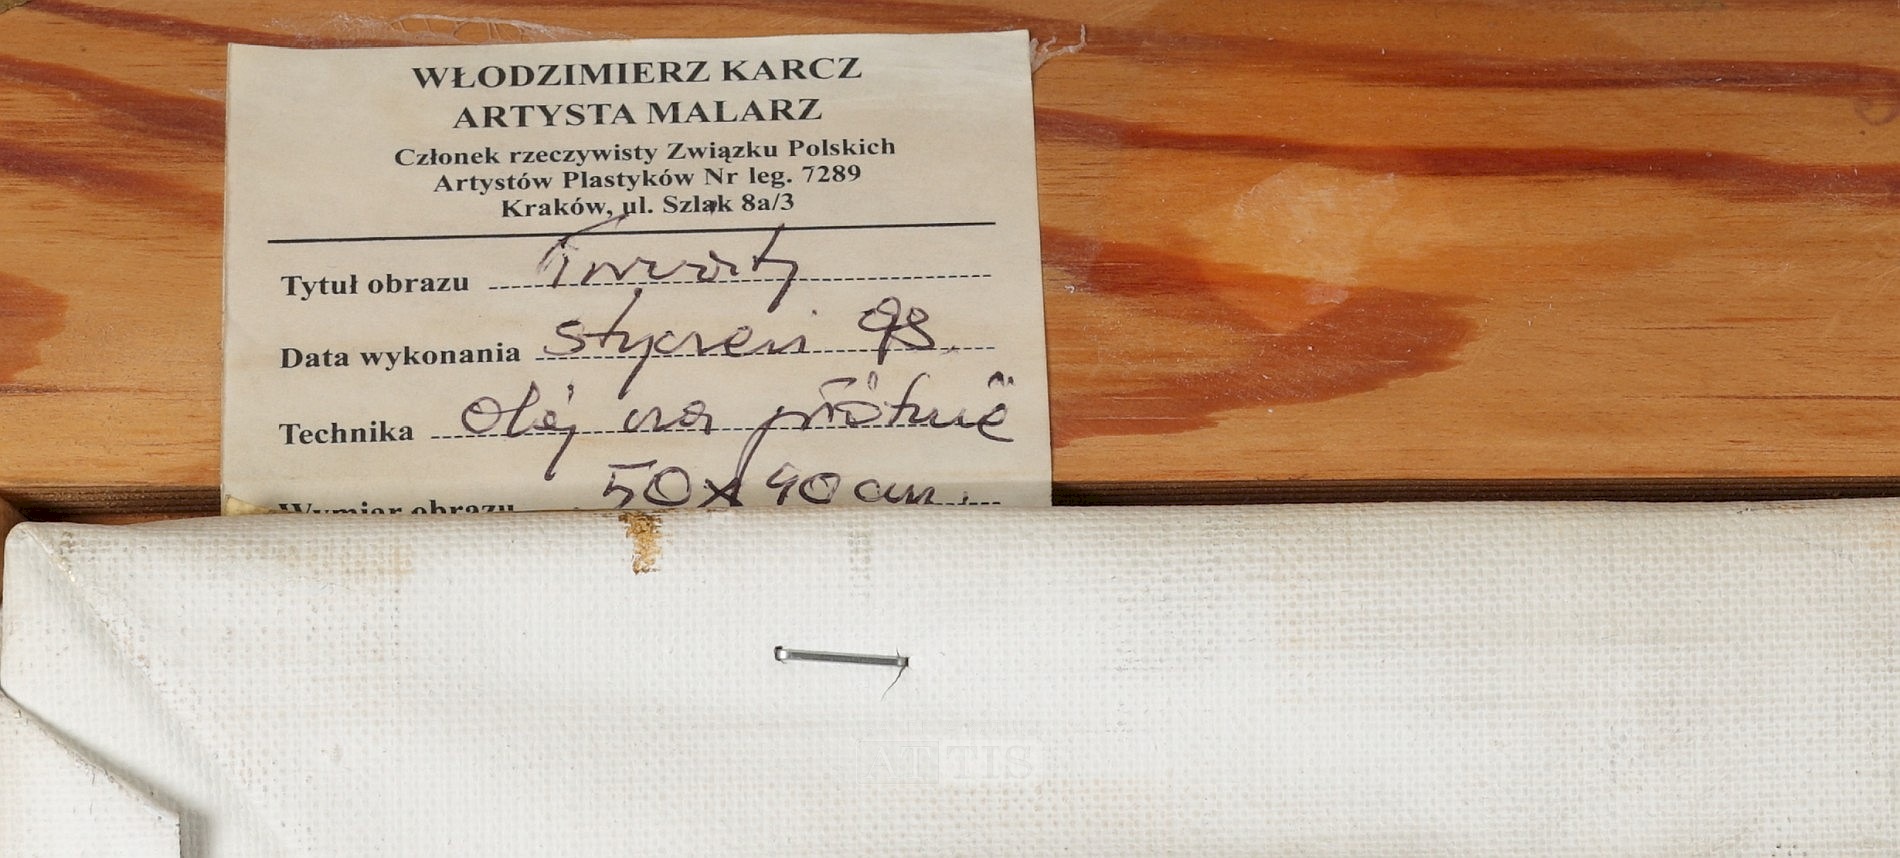 WŁODZIMIERZ KARCZ
ARTYSTA MALARZ
Członek rzeczywisty Związku Polskich
Artystów Plastyków Nr leg. 7289
Kraków, ul. Szlak 8a/3
Tytuł obrazu
Data wykonania styczeń 98.
Technika olej na płótnie
Wymiar obrazu 50x40 cm.